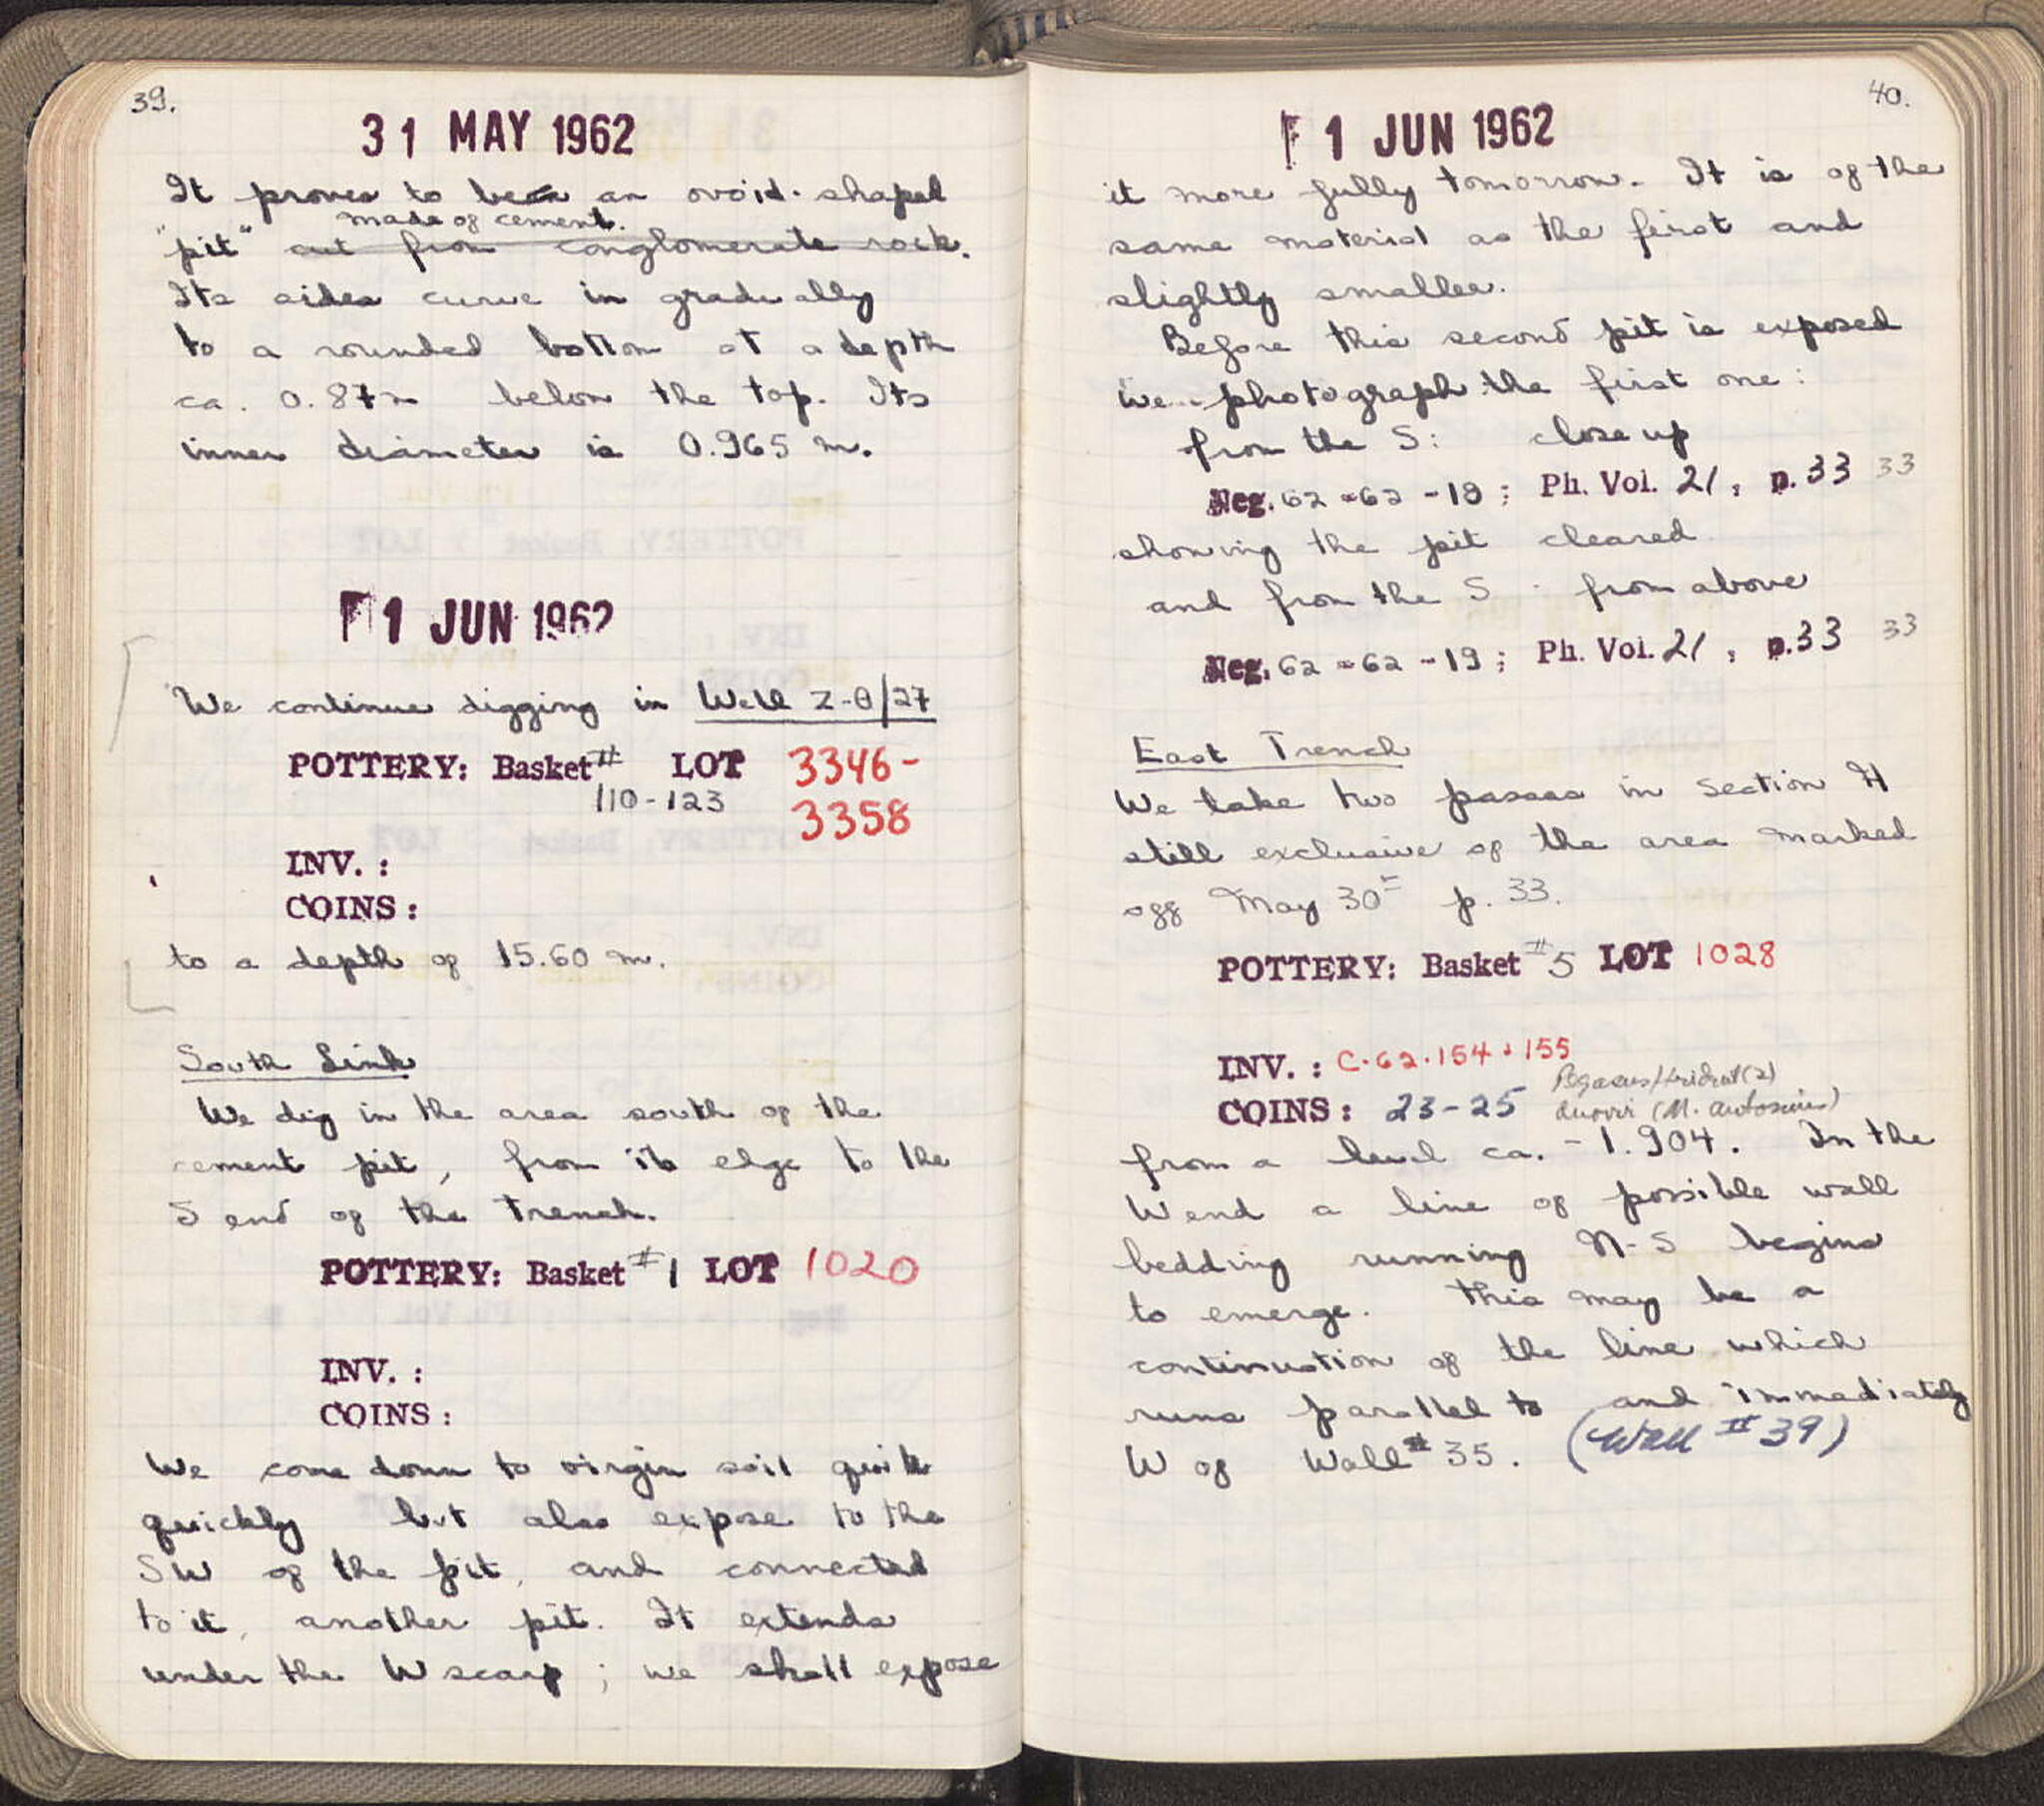 39.
31 MAY 1962
It proves to be an ovoid-shaped
made of cement.
"pit" cut from conglomerate rock.
Its sides curve in gradually
to a rounded bottom at a depth
ca. 0.87m below the top. Its
inner diameter is 0.965 m.
1 JUN 1962
We continue digging in Well Z-θ/27
POTTERY: Basket # LOT 3346-
110-123 3358
INV. :
COINS :
to a depth of 15.60 m.
South Sink
We dig in the area south of the
cement pit, from its edge to the
S end of the trench.
POTTERY: Basket #1 LOT 1020
INV. :
COINS :
We come down to virgin soil quite
quickly but also expose to the
SW of the pit, and connected
to it, another pit. It extends
under the W scarp; we shall expose
40.
1 JUN 1962
it more fully tomorrow. It is of the
same material as the first and
slightly smaller.
Before this second pit is exposed
we photograph the first one:
from the S: close up
Neg. 62-62-18; Ph. Vol. 21, p.33 33
showing the pit cleared
and from the S from above
Neg. 62-62-19; Ph. Vol. 21, p.33 33
East Trench
We take two passes in Section H
still exclusive of the area marked
off May 30 p. 33.
POTTERY: Basket #5 LOT 1028
INV. : C.62.154+155
Pegasus/trident(2)
COINS : 23-25 duovir (M. Antonius)
from a level ca. -1.904. In the
W end a line of possible wall
bedding running N-S begins
to emerge. This may be a
continuation of the line which
runs parallel to and immediately
W of Wall #35. (Wall #39)